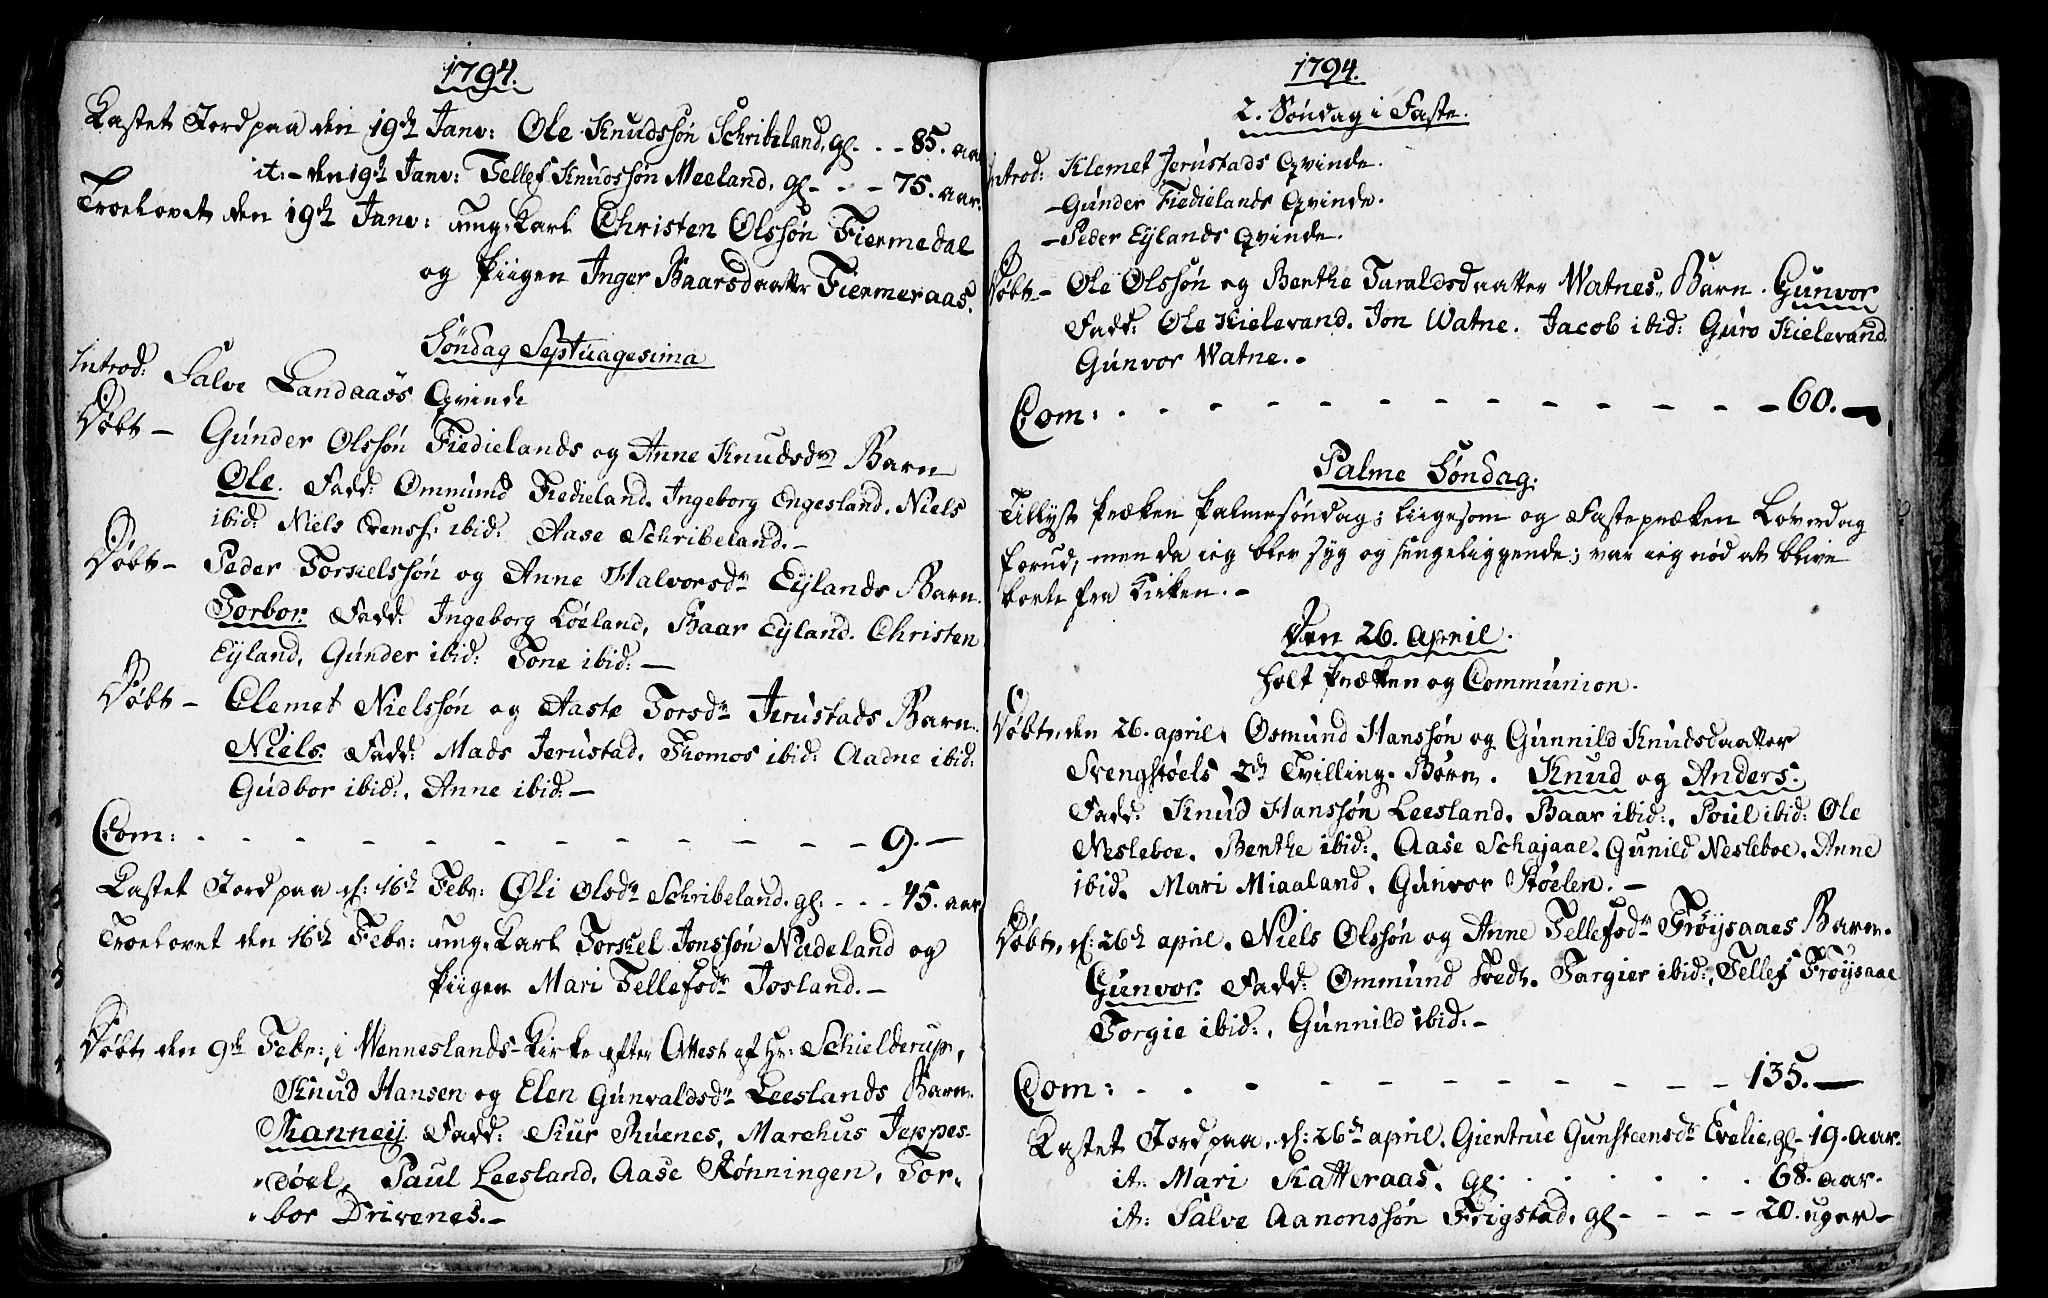 1794.
Kastet Jord paa den 19de Janv: Ole Knudssøn Schribeland, gl - - - 85. aar
it: - den 19de Janv: Tellef Knudssøn Meeland, gl - - - 75. aar.
Troelovet den 19de Janv: ung-Karl Christen Olssøn Fiermedal
og Piigen Inger Baarsdaatter Fiermeraas.
Søndag Septuagesima
Introd: Salve Landaasis Qvinde
Døbt - Gunder Olssøn Fiedielands og Anne Knudsdr Barn
Ole. Fadd: Ommund Fiedieland. Ingeborg Engesland. Niels
ibid: Niels ibid: Aase Schribeland. -
Døbt - Peder Torkielssøn og Anne Halvorsdr Eylands Barn.
Torbor. Fadd: Ingeborg Løeland, Baar Eyland. Christen
Eyland, Gunder ibid: Tone ibid: -
Døbt - Clemet Nielssøn og Aaste Torsdr Jerustads Barn.
Niels. Fadd: Mads Jerustad. Thomos ibid: Aadne ibid:
Gudbor ibid:, Anne ibid: -
Com: - - - - - - - - - - - - 9. -
Kastet Jord paa d: 16de Febr: Øli Olsdr Schribeland. gl: - - - 45. aar
Troelovet den 16de Febr: ung-Karl Torkel Jonssøn Nudeland og
Piigen Mari Tellefsdr Josland. -
Døbt den 9de Febr:, i Wenneslands-Kirke efter Attest af Hr: Schielderup,
Knud Hansen og Elen Gunvaldsdr Leeslands Barn.
Ranneij Fadd: Siur Ruenes, Marchus Jeppes-
døel, Paul Leesland, Aase Rønningen, Tor-
bor Drivenes. -
1794.
2. Søndag i Faste.
Introd: Klemet Jerustads Qvinde.
- Gunder Fiedielands Qvinde.
- Peder Eylands Qvinde.
Døbt - Ole Olssøn og Berthe Taraldsdaatter Watnes Barn. Gunvor
Fadd: Ole Kielevand. Jon Watne. Jacob ibid: Guro Kielevand.
Gunvor Watne. -
Com: - - - - - - - - - - - - 60. -
Palme Søndag:
Tillyst Præken Palmesøndag; liigesom og Fastepræken Løverdag
forud, men da ieg blev syg og sengeliggende; var ieg nød at blive
borte fra Kirken. -
Den 26. April.
holt Præken og Communion.
Døbt, den 26. april, Osmund Hanssøn og Gunnild Knudsdaatter
Svengstøels 2de Tvilling-Børn. Knud og Anders.
Fadd: Knud Hanssøn Leesland. Baar ibid:, Poul ibid: Ole
Nesleboe. Berthe ibid:, Aase Schajaae. Gunild Nesleboe. Anne
ibid. Mari Miaaland. Gunvor Støelen. -
Døbt, d: 26de april, Niels Olssøn og Anne Tellefsdr Frøysaaes Barn.
Gunvor. Fadd: Ommund Targier ibid:, Tellef Frøysaae
Torgie ibid:, Gunnild ibid: -
Com: - - - - - - - - - - - - 135. -
Kastet Jord paa, d: 26de april, Gientrue Gunsteensdr Evelie, gl - 19. aar.
it: Mari Katteraas. gl. . . . . . . 68. aar.
it: Salve Aanonssøn Frigstad. gl - - - - 20. uger -